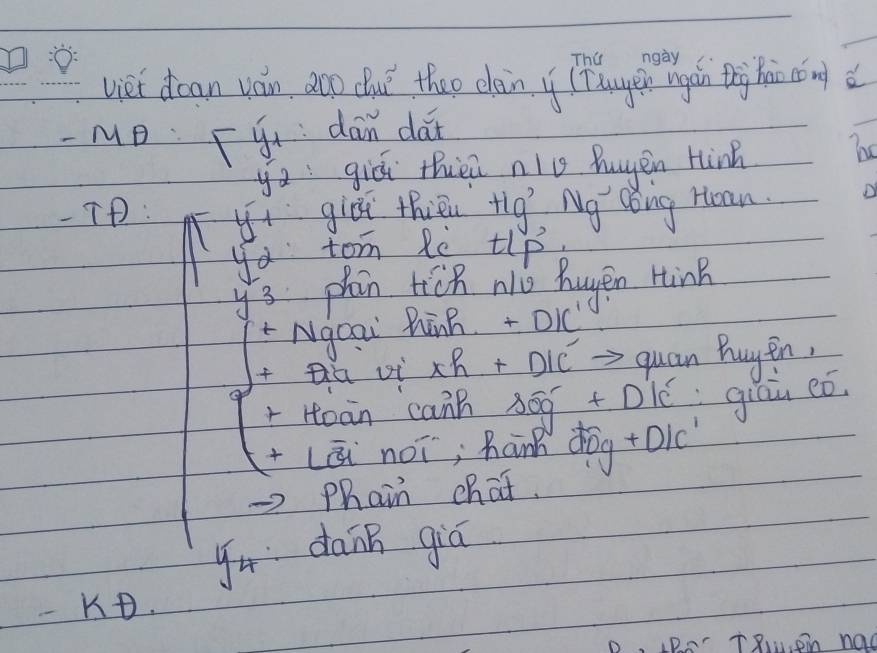 Thứ ngày
Viết đoạn văn 200 chữ theo dàn ý (Truyện ngắn Đồng hào có ma)
- MĐ: ý1: dẫn dắt
ý2: giới thiệu n/v huyện Hinh
- TĐ: ý1: giới thiệu t/g Ng~ Công Hoan.
ý2: tóm tắt t/p.
ý3: phân tích n/v huyện Hinh
+ Ngoại hình + D/C
+ Địa vị xh + D/C → quan huyện,
+ Hoàn cảnh sốg + D/C: giàu có.
+ Lời nói, hành độg + D/C
→ Phẩm chất.
ý4: đánh giá
- KĐ.
Truyện